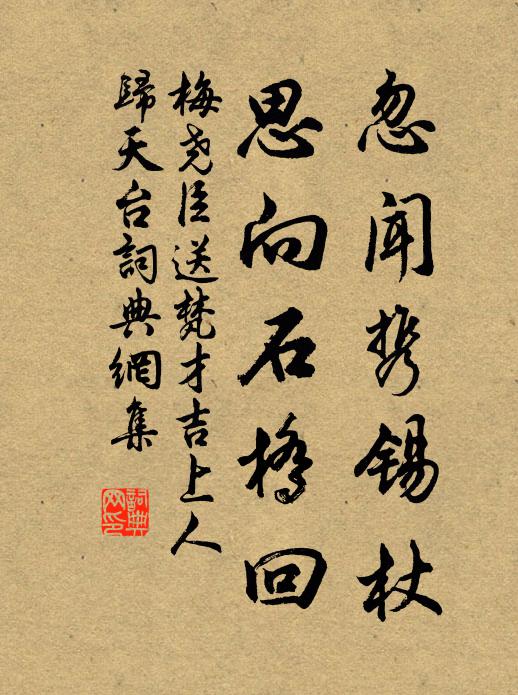 忽闻携锡杖
思向石桥回
梅尧臣送梵才吉上人
歸天台詞典網集
詞典網印